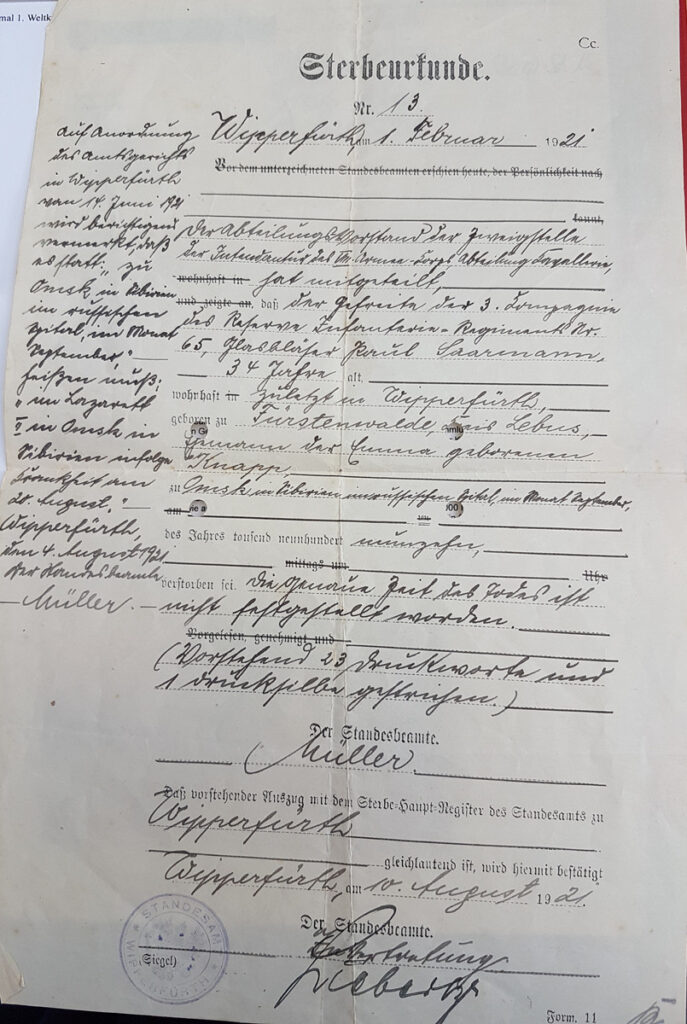 mal 1. Weltk
Cc.
Sterbeurkunde.
Nr. 13.
Wipperfürth, am 1. Februar 1921.
Vor dem unterzeichneten Standesbeamten erschien heute, der Persönlichkeit nach
kannt,
der Abteilungsvorstand der Zweigstelle
der Intendantur des Armee-Korps Abteilung Kavallerie,
wohnhaft in hat mitgeteilt,
und zeigte an, daß der Gefreite der 3. Compagnie
des Reserve Infanterie-Regiments Nr.
65, Glasbläser Paul Saarmann,
34 Jahre alt,
wohnhaft in zuletzt in Wipperfürth,
geboren zu Fürstenwalde, Kreis Lebus,
Ehemann der Emma geborenen
Knapp
zu Omsk in Sibirien im russischen Spital, im Monat September,
am
des Jahres tausend neunhundert neunzehn,
mittags um Uhr
verstorben sei. Die genaue Zeit des Todes ist
nicht festgestellt worden.
Vorgelesen, genehmigt und
(Vorstehend 23 Druckworte und
1 Drucksilbe gestrichen.)
Der Standesbeamte.
Müller
Daß vorstehender Auszug mit dem Sterbe-Haupt-Register des Standesamts zu
Wipperfürth
gleichlautend ist, wird hiermit bestätigt
Wipperfürth, am 10. August 1921.
Der Standesbeamte.
In Vertretung
(Siegel)
STANDESAM
WIPPERFÜRTH
Form. 11
Auf Anordnung
des Amtsgerichts
in Wipperfürth
vom 14. Juni 1921
wird berichtigend
vermerkt, daß
es statt: „zu
Omsk in Sibirien
im russischen
Spital, im Monat
September,"
heißen muß:
„im Lazarett
II in Omsk in
Sibirien infolge
Krankheit am
20 August."
Wipperfürth,
den 4. August 1921
Der Standesbeamte
Müller.